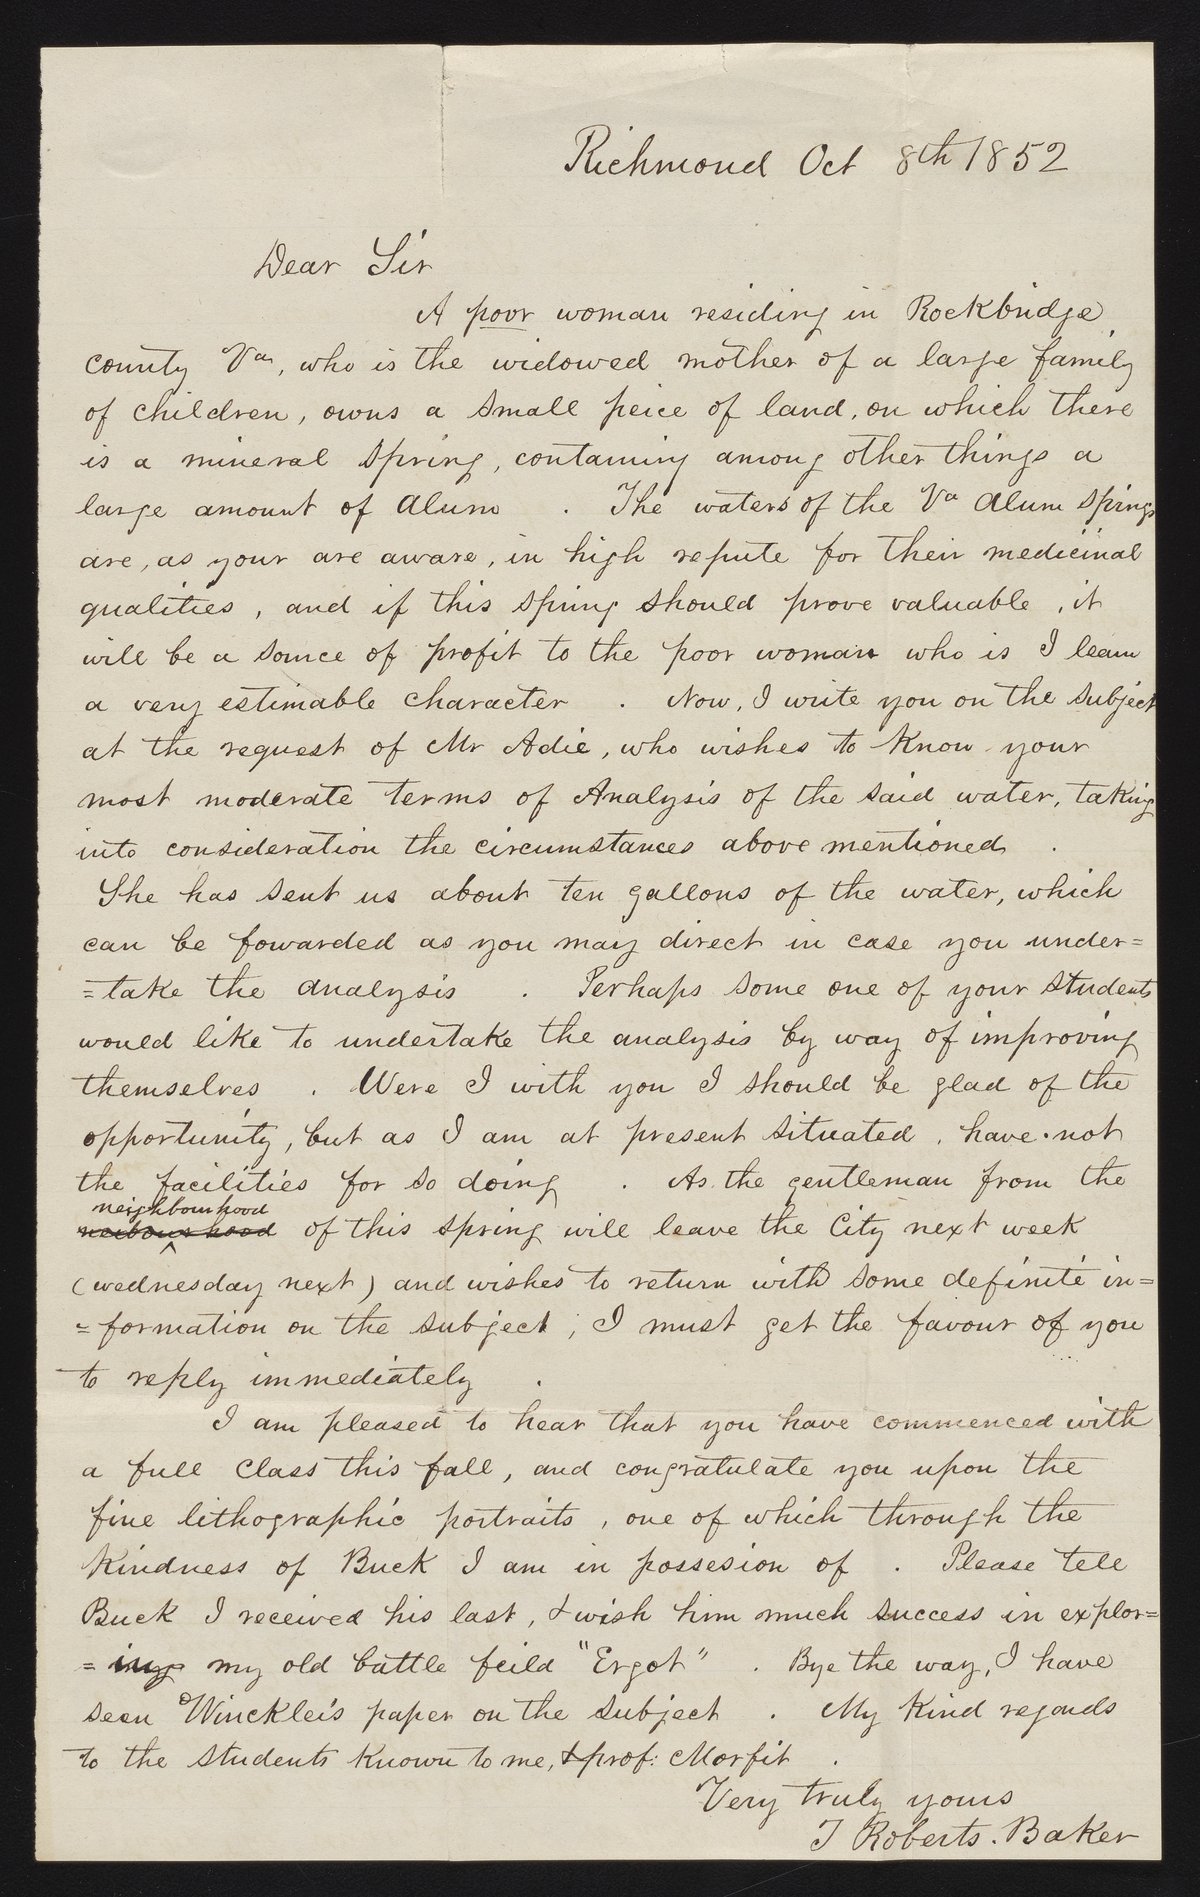 Richmond Oct 8th 1852
Dear Sir
A poor woman residing in Rockbridge
county Va, who is the widowed mother of a large family
of children, owns a small peice of land, on which there
is a mineral spring, containing among other things a
large amount of Alum . The waters of the Va Alum springs
are, as your are aware, in high repute for their medicinal
qualities, and if this spring should prove valuable, it
will be a source of profit to the poor woman who is I learn
a very estimable character . Now, I write you on the subject
at the request of Mr Adie, who wishes to know your
most moderate terms of Analysis of the said water, taking
into consideration the circumstances above mentioned .
She has sent us about ten gallons of the water, which
can be fowarded as you may direct in case you under=
=take the analysis . Perhaps some one of your students
would like to undertake the analysis by way of improving
themselves . Were I with you I should be glad of the
opportunity, but as I am at present situated, have not
the facilities for so doing . As the gentleman from the
neighbourhood
neibourhood of this spring will leave the City next week
(wednesday next) and wishes to return with some definite in=
=formation on the subject, I must get the favour of you
to reply immediately .
I am pleased to hear that you have commenced with
a full class this fall, and congratulate you upon the
fine lithographic portraits, one of which through the
kindness of Buck I am in possesion of . Please tell
Buck I received his last, & wish him much success in explor=
=ing my old battle feild "Ergot" . Bye the way, I have
seen Winckler's paper on the subject . My kind regards
to the students known to me, & prof: Morfit .
Very truly yours
T Roberts. Baker